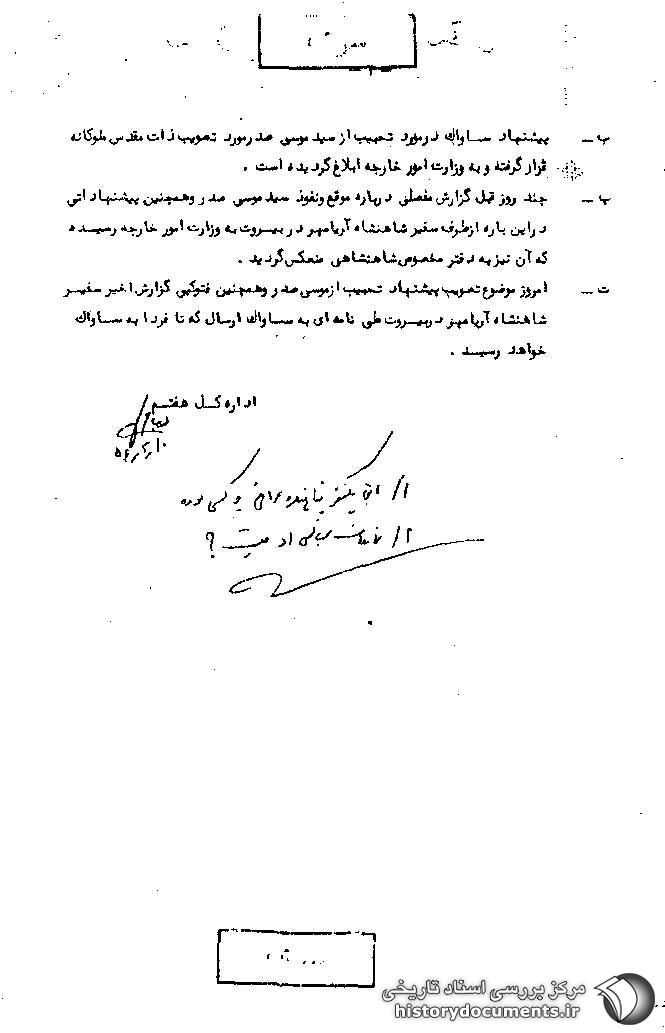 - ۲ -
ب - پیشنهاد ساواك در مورد تحبیب از سید موسی صدر مورد تصویب ذات مقدس ملوکانه
قرار گرفته و به وزارت امور خارجه ابلاغ گردیده است .
پ - چند روز قبل گزارش مفصلی درباره موقع ونفوذ سید موسی صدر وهمچنین پیشنهاداتی
در این باره از طرف سفیر شاهنشاه آریامهر در بیروت به وزارت امور خارجه رسیده
که آن نیز به دفتر مخصوص شاهنشاهی منعکس گردید .
ت - امروز موضوع تصویب پیشنهاد تحبیب از موسی صدر وهمچنین فتوکپی گزارش اخیر سفیر
شاهنشاه آریامهر در بیروت طی نامه ای به ساواك ارسال که تا فردا به ساواك
خواهد رسید .
اداره کل هفتم
۱/
۲/ اد ؟
مرکز بررسی اسناد تاریخی
historydocuments.ir